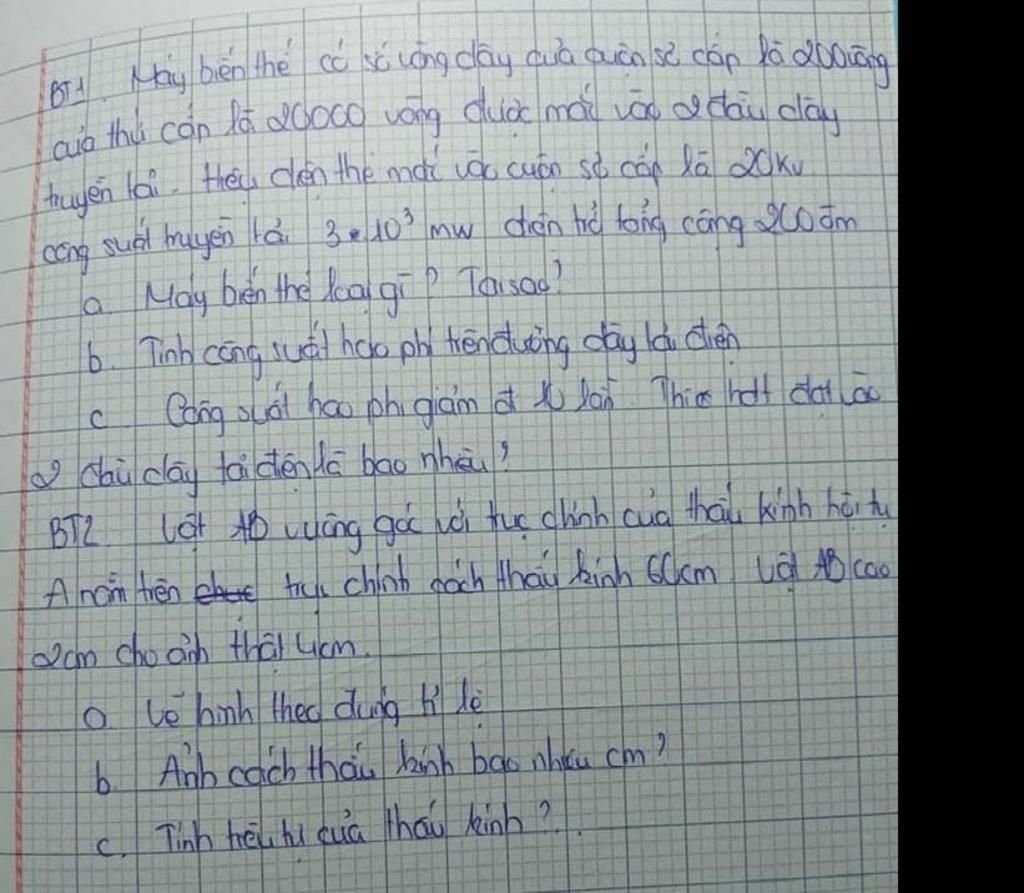 BT1. Máy biến thế có số vòng dây của cuộn sơ cấp là 200 vòng
của thứ cấp là 20000 vòng được mắc vào 2 đầu dây
truyền tải. Hiệu điện thế mắc vào cuộn sơ cấp là 20KV
công suất truyền tải 3*10³ mw điện trở tổng cộng 200 ôm
a. Máy biến thế loại gì? Tại sao?
b. Tính công suất hao phí trên đường dây tải điện
c. Công suất hao phí giảm đi lần. Thì hđt đặt vào
2 đầu dây tải điện là bao nhiêu?
BT2 Vật AB vuông góc với trục chính của thấu kính hội tụ
A nằm trên trục chính cách thấu kính 60cm Vật AB cao
2cm cho ảnh thật 4cm.
a. Vẽ hình theo đúng tỉ lệ
b. Ảnh cách thấu kính bao nhiêu cm?
c. Tính tiêu cự của thấu kính?